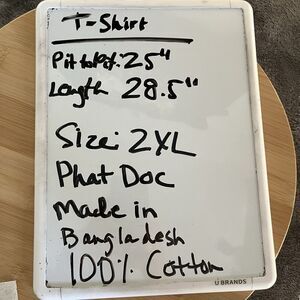 T-Shirt
Pit to Pit: 25"
Length 28.5"
Size: 2XL
Phat Doc
Made in
Bangladesh
100% Cotton
U BRANDS